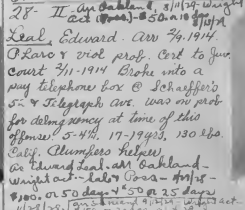 28- II- Arr Oakland, 8/11/29- Wright
Act (Poss)- $50. or
Leal, Edward - Arr 2/9.1914.
P Larc & viol prob. Cert to Juv.
court 2/11-1914 Broke into a
pay telephone box @ Schaeffer's
5- & Telegraph Ave. Was on prob
for delinquency at time of this
offense 5-4½, 17-19 yrs, 130 lbs.
Calif. Plumbers helper.
as Edward Leal - Arr Oakland -
Wright act - Sale & Poss -
$100. or 50 days & $50 or 25 days
11/28/28.